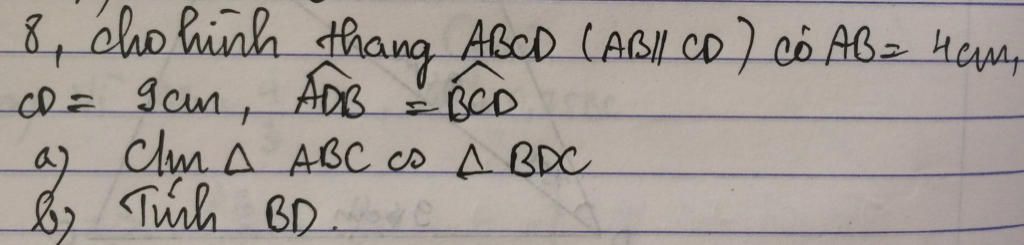 8, cho hình thang ABCD (AB// CD) có AB = 4cm,
CD = 9cm, \widehat{ADB} = \widehat{BCD}
a) Cm Δ ABC ∽ Δ BDC
b) Tính BD.